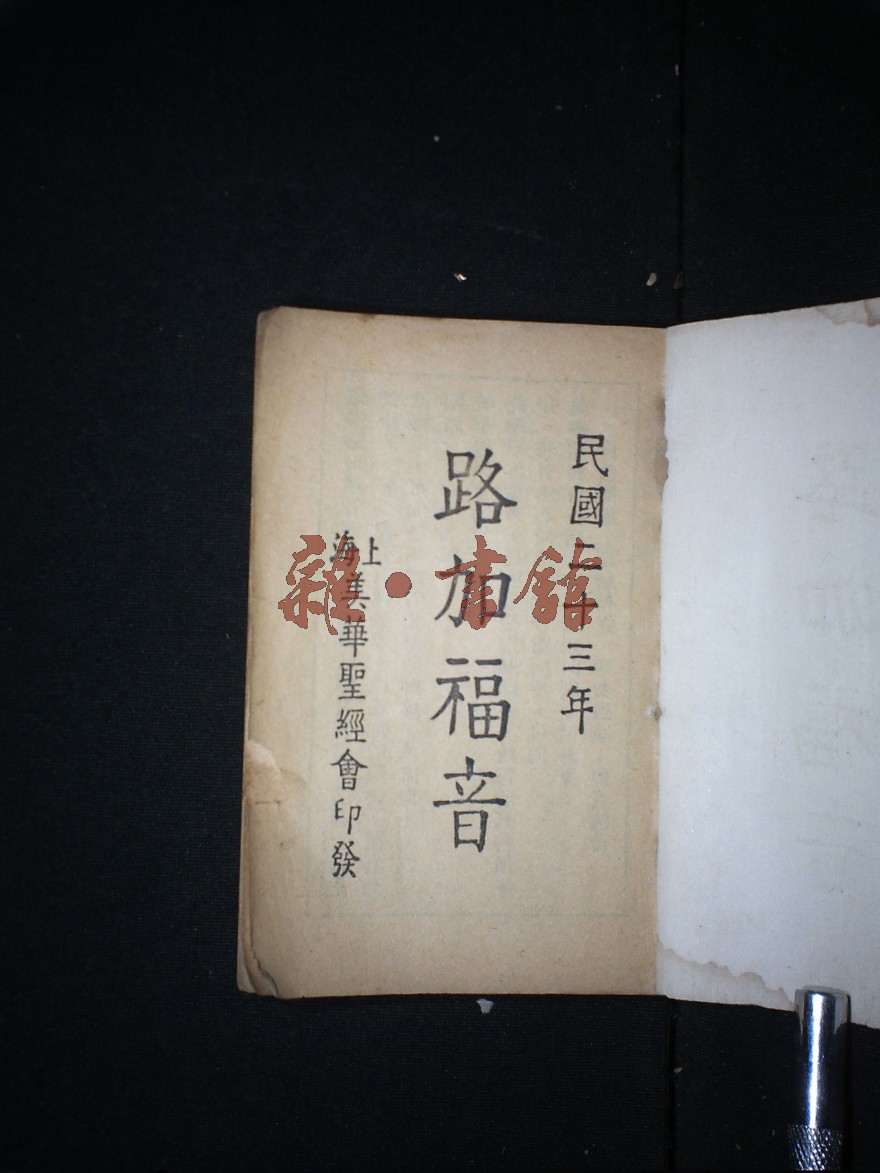 民國二十三年
路加福音
上海美華聖經會印發
雜·書館